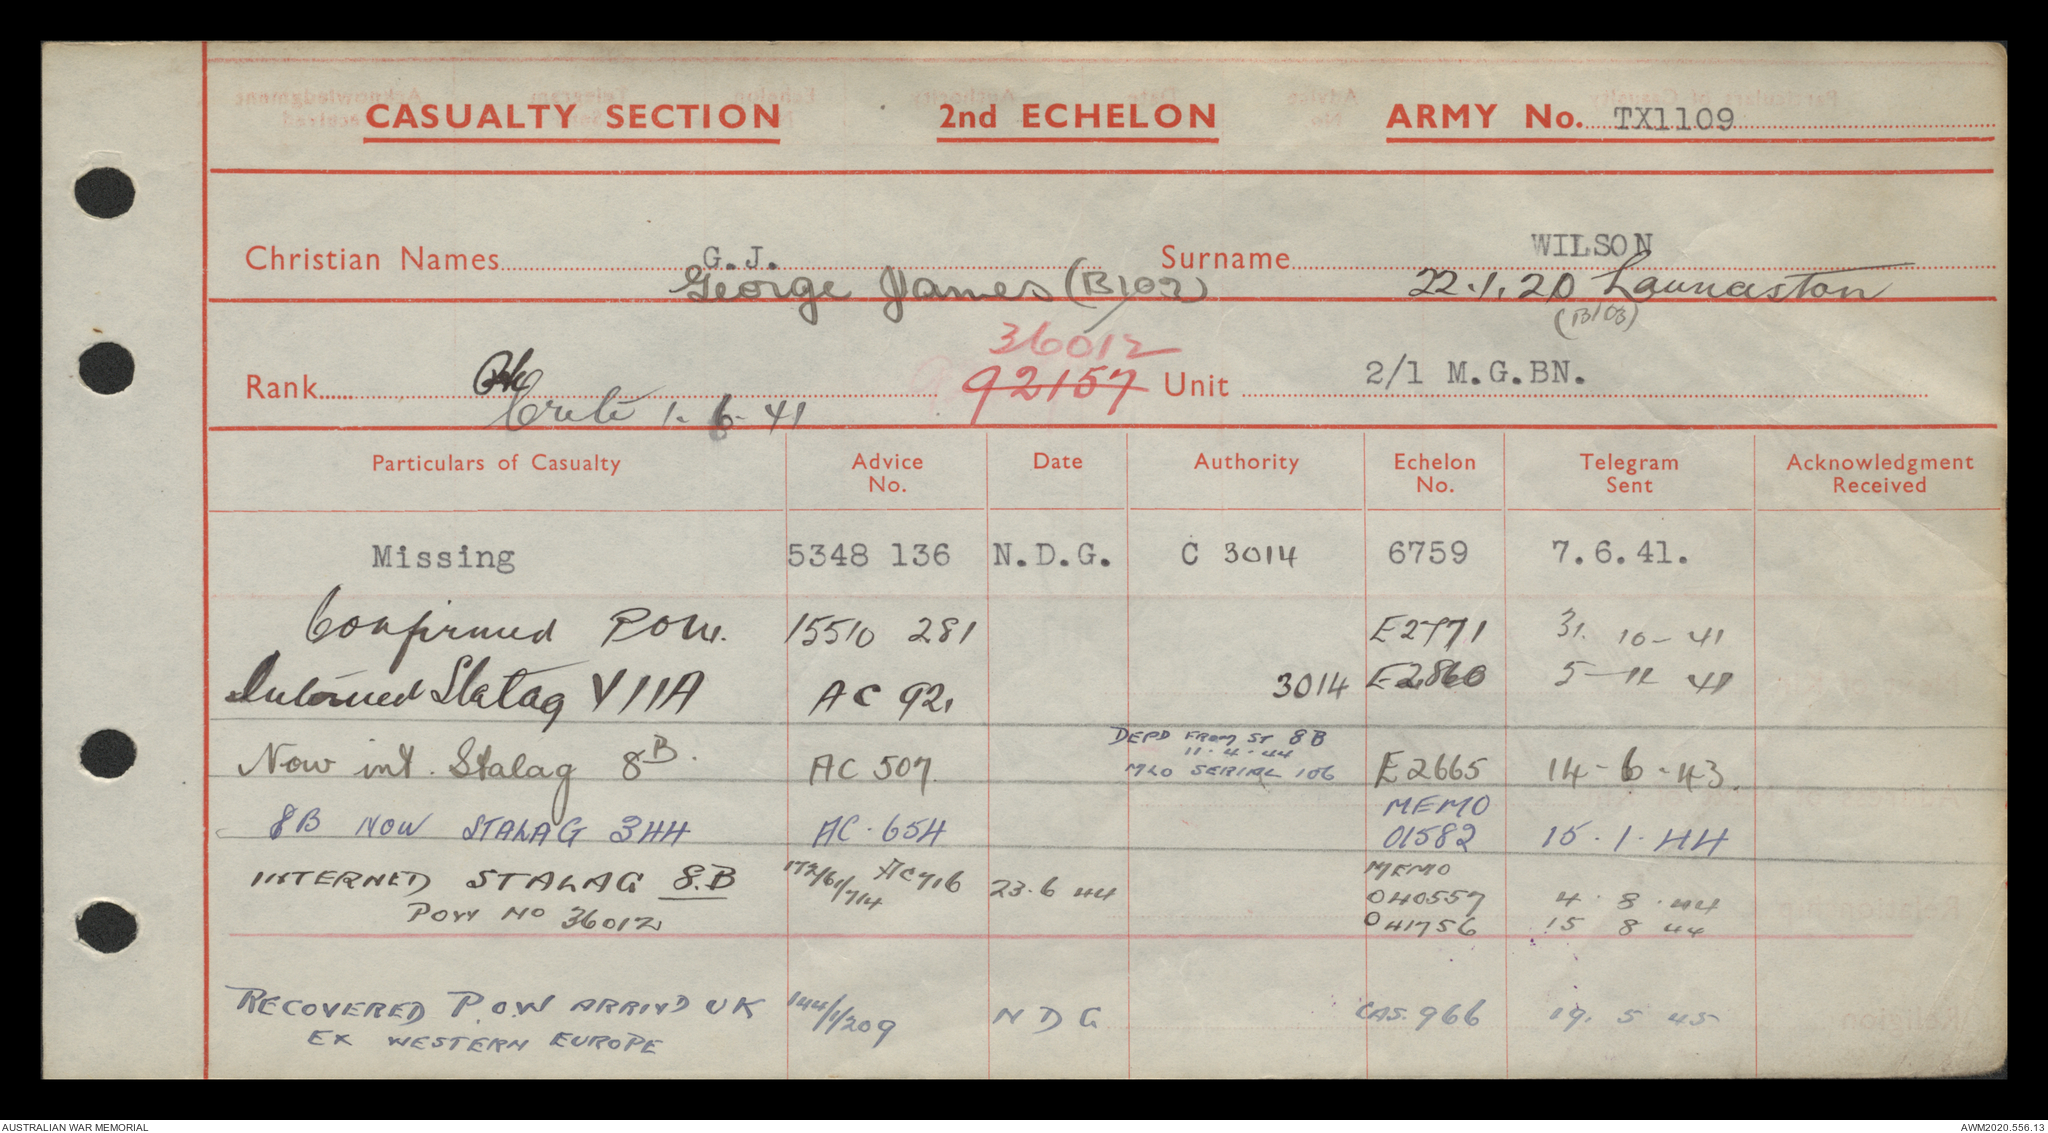 CASUALTY SECTION 2nd ECHELON ARMY No. TX1109
Christian Names G.J. Surname WILSON
George James (B102) 22.1.20 Launceston
(B103)
36012
Rank Pte 92157 Unit 2/1 M.G.BN.
Crete 1.6.41
Particulars of Casualty Advice No. Date Authority Echelon No. Telegram Sent Acknowledgment Received
Missing 5348 136 N.D.G. C 3014 6759 7.6.41.
Confirmed POW. 15510 281 E2771 31. 10-41
Interned Stalag VIIA AC 92. 3014 E2860 5-12 41
DEPD FROM ST 8B
11.4.44
Now int. Stalag 8B. AC 507. MLO SERIAL 106 E2665 14-6-43.
MEMO
8B NOW STALAG 344 AC.654 01582 15.1.44
MEMO
INTERNED STALAG 8.B 172/61/714 AC716 23.6 44 040557 4.8.44
POW NO 36012 041756 15 8 44
RECOVERED P.O.W ARRIVD UK 144/1/209 N D G CAS. 966 19. 5 45
EX WESTERN EUROPE
AUSTRALIAN WAR MEMORIAL AWM2020.556.13